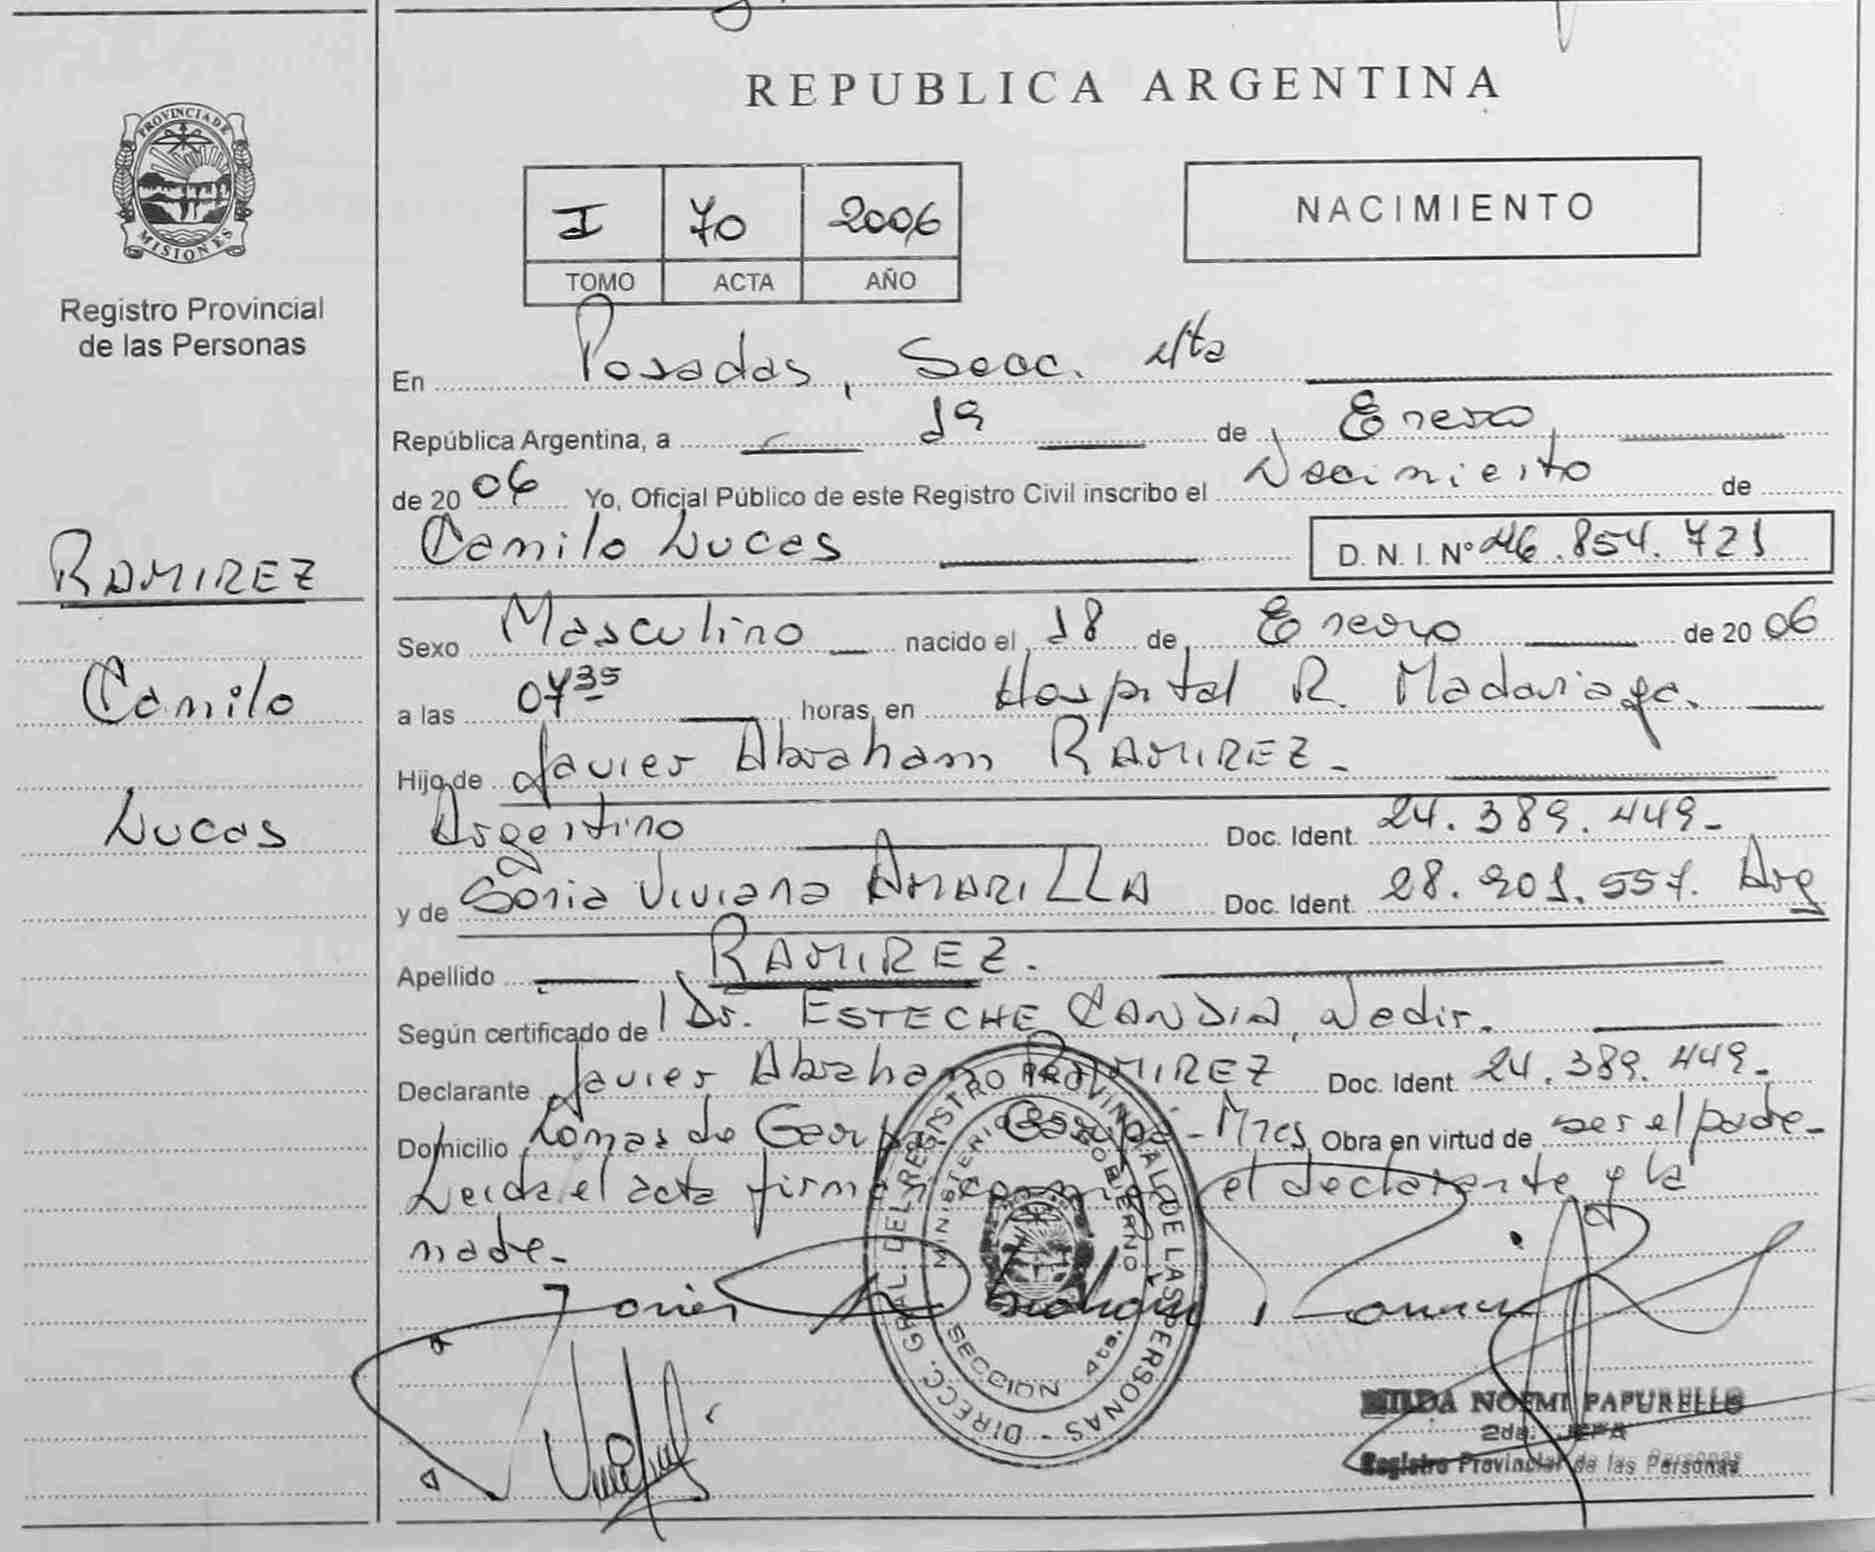 REPUBLICA ARGENTINA
PROVINCIA DE MISIONES
Registro Provincial
de las Personas
I 70 2006
TOMO ACTA AÑO
NACIMIENTO
RAMIREZ
Camilo
Lucas
En Posadas, Secc. 4ta
República Argentina, a 19 de Enero
de 2006 Yo, Oficial Público de este Registro Civil inscribo el Nacimiento de
Camilo Lucas D. N. I. Nº 46.854.721
Sexo Masculino nacido el 18 de Enero de 2006
a las 07 35 horas, en Hospital R. Madariaga.
Hijo de Javier Abraham RAMIREZ-
Argentino Doc. Ident. 24.389.449-
y de Sonia Viviana AMARILLA Doc. Ident. 28.901.557. Arg
Apellido RAMIREZ.
Según certificado de Dr. ESTECHE CANDIA, Nedir.
Declarante Javier Abraham RAMIREZ Doc. Ident. 24.389.449-
Domicilio Lomas de Garupá Garupá - Mnes Obra en virtud de ser el padre-
Leída el acta firman conmigo el declarante y la
madre-
Javier Abraham Ramirez
DIRECC. GRAL. DEL REGISTRO PROVINCIAL DE LAS PERSONAS -
MINISTERIO DE GOBIERNO
SECCION 4ta.
NOEMI PAPURELLO
2da. JEFA
Registro Provincial de las Personas